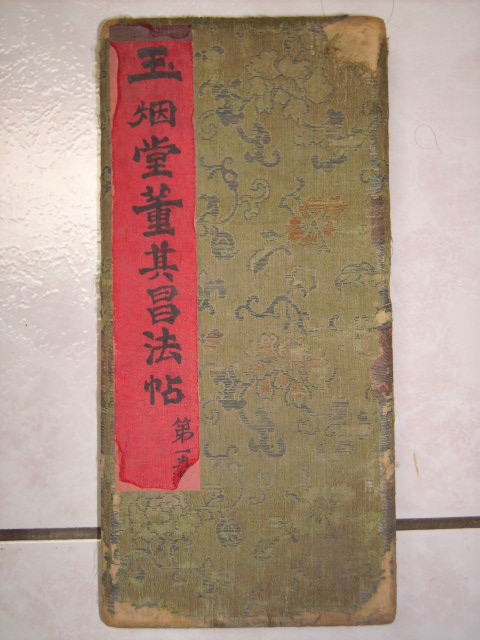 玉烟堂董其昌法帖
第一